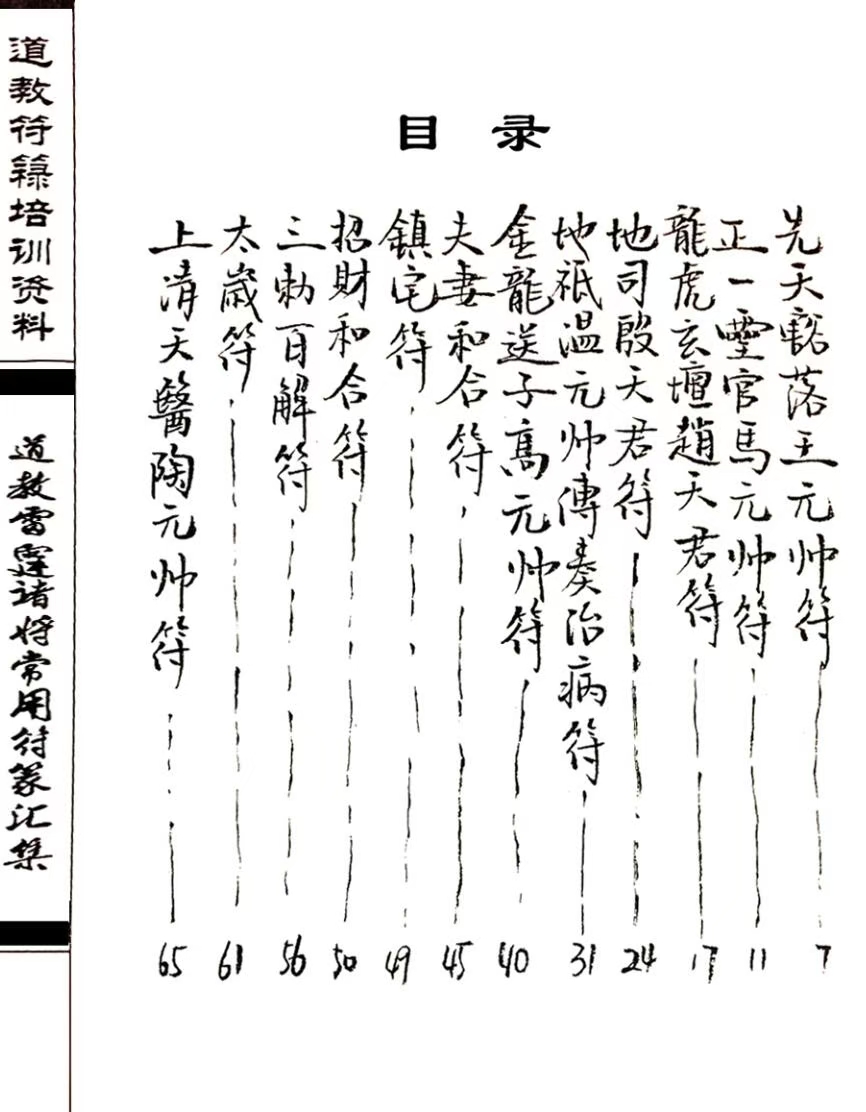 目 录
先天豁落王元帅符 7
正一靈官馬元帅符 11
龍虎玄壇趙天君符 17
地司殷天君符 24
地祇温元帅傳奏治病符 31
金龍送子高元帅符 40
夫妻和合符 45
鎮宅符 49
招財和合符 50
三勅百解符 56
太歲符 61
上清天醫陶元帅符 65
道教符籙培训资料
道教雷霆诸将常用符篆汇集